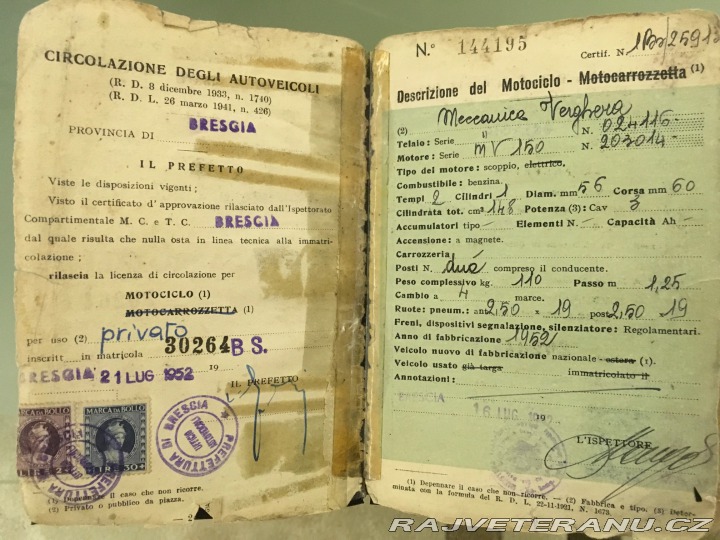 CIRCOLAZIONE DEGLI AUTOVEICOLI
(R. D. 8 dicembre 1933, n. 1740)
(R. D. L. 26 marzo 1941, n. 426)
PROVINCIA DI BRESCIA
IL PREFETTO
Viste le disposizioni vigenti ;
Visto il certificato d'approvazione rilasciato dall'Ispettorato
Compartimentale M. C. e T. C. BRESCIA
dal quale risulta che nulla osta in linea tecnica alla immatri-
colazione ;
rilascia la licenza di circolazione per
MOTOCICLO (1)
MOTOCARROZZETTA (1)
per uso (2) privato
inscritt in matricola 30264 BS.
BRESCIA 21 LUG 1952 19
IL PREFETTO
MARCA DA BOLLO MARCA DA BOLLO
LIRE 50
PREFETTURA DI BRESCIA
(1) Depennare il caso che non ricorre.
(2) Privato o pubblico da piazza.
N.° 144195
Certif. N.
Descrizione del Motociclo - Motocarrozzetta (1)
(2) Meccanica Verghera
Telaio: Serie N. 024116
Motore: Serie MV 150 N. 203014
Tipo del motore: scoppio, elettrico,
Combustibile: benzina.
Tempi 2 Cilindri 1 Diam. mm 56 Corsa mm 60
Cilindrata tot. cm³ 148 Potenza (3): Cav 3
Accumulatori tipo — Elementi N. — Capacità Ah —
Accensione: a magnete.
Carrozzeria
Posti N. due compreso il conducente.
Peso complessivo kg. 110 Passo m 1,25
Cambio a 4 marce.
Ruote: pneum.: ant. 2,50 x 19 post. 2,50 19
Freni, dispositivi segnalazione, silenziatore: Regolamentari.
Anno di fabbricazione 1952
Veicolo nuovo di fabbricazione nazionale - estera (1).
Veicolo usato già targa immatricolato il
Annotazioni:
BRESCIA 16 LUG. 195
L'ISPETTORE
(1) Depennare il caso che non ricorre. — (2) Fabbrica e tipo. (3) Deter-
minata con la formula del R. D. L. 22-11-1921, N. 1673.
RAJVETERANU.CZ